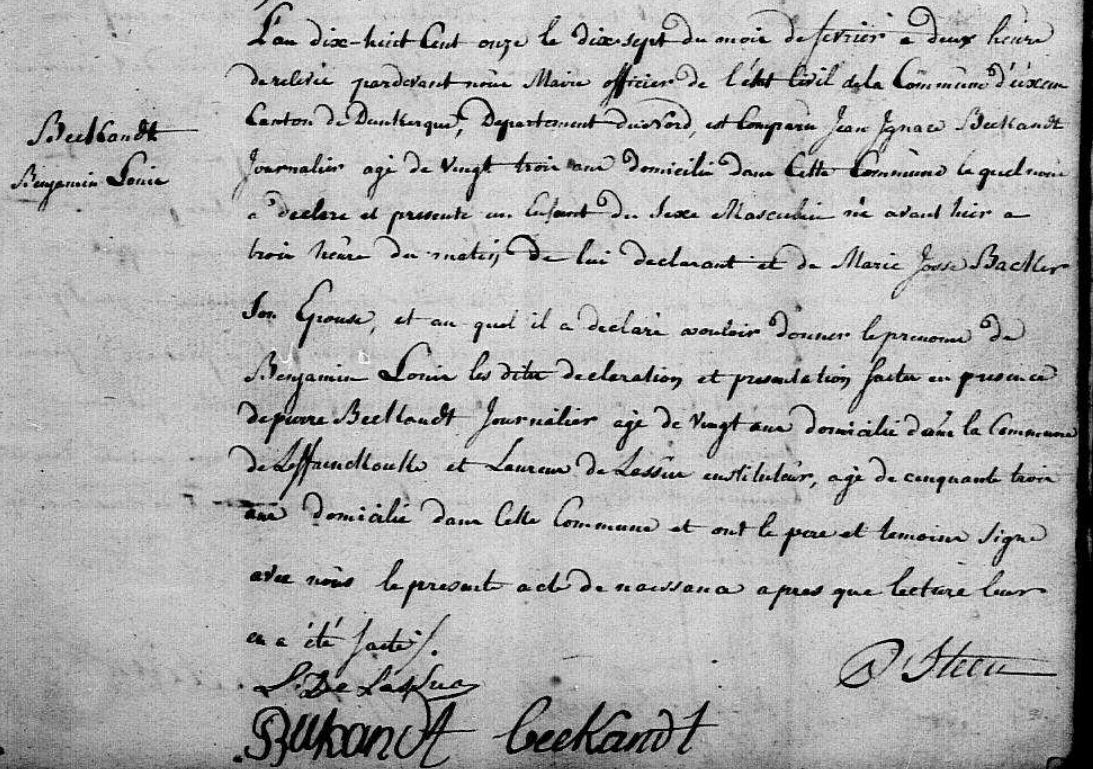 Beekandt
Benjamin Louis
L'an dix-huit Cent onze le dix sept du mois de fevrier a deux heure
de relevée pardevant nous Maire officier de l'état Civil de la Commune d'uxem
Canton de Dunkerque, Departement du Nord, est Comparu Jean Ignace Beekandt
Journalier agé de vingt trois ans domicilié dans Cette Commune le quel nous
a declare et presente un Enfant du Sexe Masculin né avant hier a
trois heure du matin de lui declarant et de Marie Josse Backer
Son Epouse, et au quel il a declaré vouloir donner le prenoms de
Benjamin Louis les dites declaration et presentation faites en presence
de pierre Beekandt Journalier agé de vingt ans domicilié dans la Commune
de Leffrinckoucke et Laurens de instituteur, agé de cinquante trois
ans domicilié dans Cette Commune et ont le pere et temoins Signe
avec nous le present acte de naissance apres que lecture leur
en a été faite /.
D Steen
L. De
Bukandt beekandt